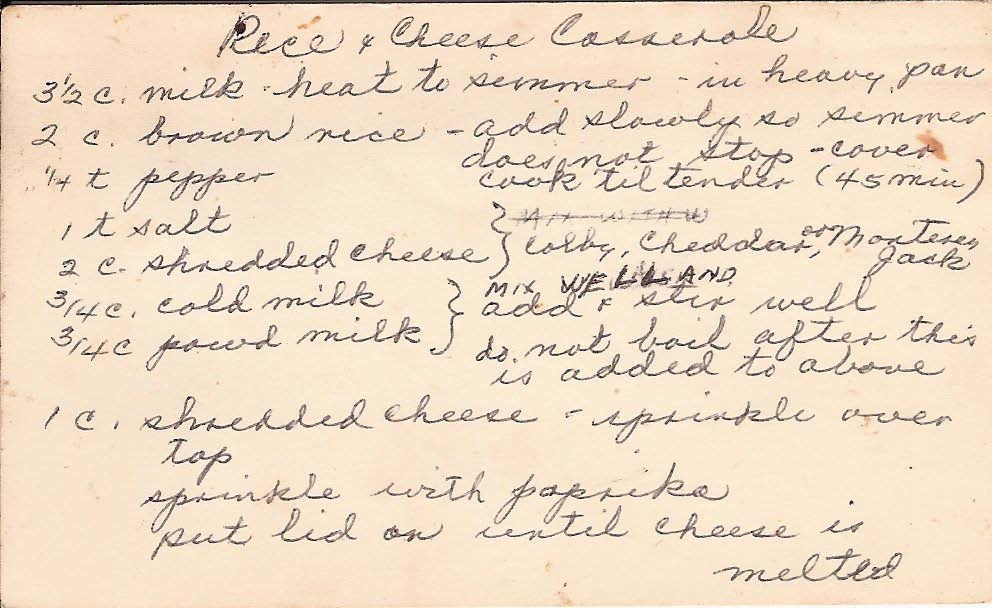 Rice & Cheese Casserole
3 1/2 c. milk - heat to simmer - in heavy pan
2 c. brown rice - add slowly so simmer
does not stop - cover
1/4 t pepper cook til tender (45 min)
1 t salt } MIX WITH
2 c. shredded cheese Colby, Cheddar, or Monterey Jack
MIX WELL AND
3/4 c. cold milk } add & stir well
3/4 c powd milk do not boil after this
is added to above
1 c. shredded cheese - sprinkle over
top
sprinkle with paprika
put lid on until cheese is
melted